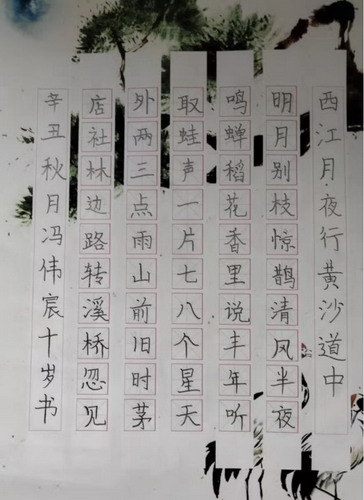 西江月夜行黄沙道中
明月别枝惊鹊清风半夜
鸣蝉稻花香里说丰年听
取蛙声一片七八个星天
外两三点雨山前旧时茅
店社林边路转溪桥忽见
辛丑秋月冯伟宸十岁书